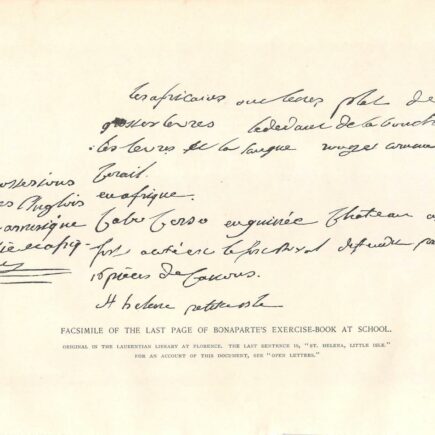 les africains ont le nez plat de
grosses levres le dedans de la bouch
les levres et la langue rouges comme
Corail.
possessions en afrique.
es Anglois Cabo Corso en guinée Chateau
amerique fort
16 pièces de Canons.
St helene petite isle
FACSIMILE OF THE LAST PAGE OF BONAPARTE'S EXERCISE-BOOK AT SCHOOL.
ORIGINAL IN THE LAURENTIAN LIBRARY AT FLORENCE. THE LAST SENTENCE IS, "ST. HELENA, LITTLE ISLE."
FOR AN ACCOUNT OF THIS DOCUMENT, SEE "OPEN LETTERS."